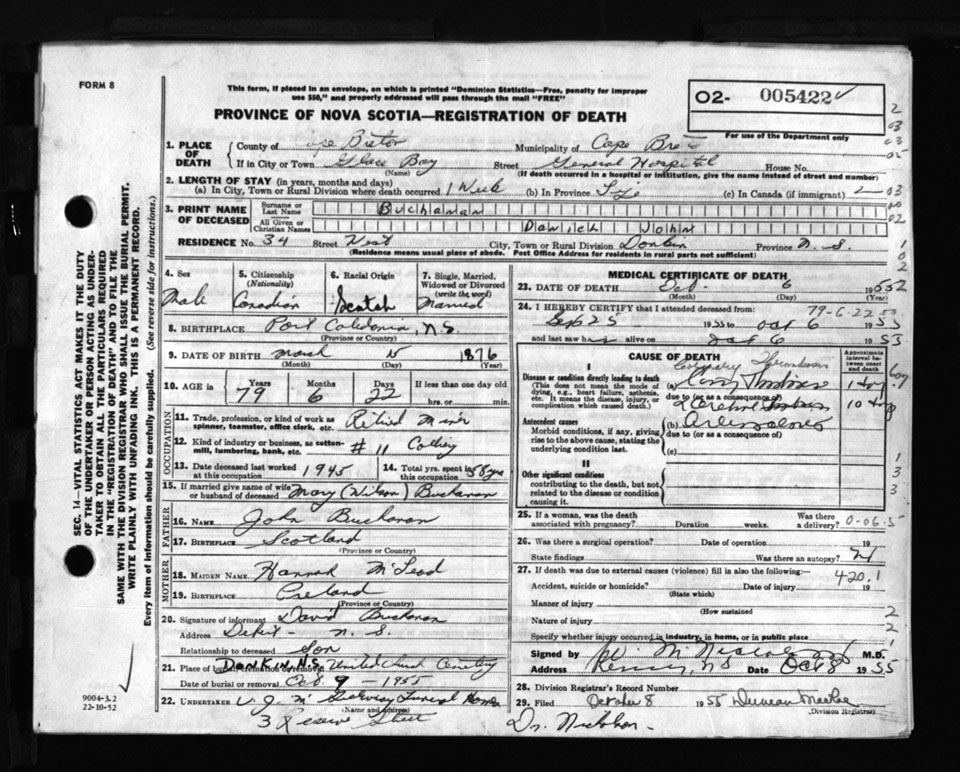 FORM 8
This form, if placed in an envelope, on which is printed "Dominion Statistics—Free, penalty for improper
use $50," and properly addressed will pass through the mail "FREE"
O2- 005422
PROVINCE OF NOVA SCOTIA—REGISTRATION OF DEATH
For use of the Department only
1. PLACE OF DEATH County of Cape Breton Municipality of Cape
If in City or Town Glace Bay Street General Hospital House No.
(Name) (If death occurred in a hospital or institution, give the name instead of street and number)
2. LENGTH OF STAY (in years, months and days)
(a) In City, Town or Rural Division where death occurred 1 Week (b) In Province Life (c) In Canada (if immigrant)
3. PRINT NAME OF DECEASED Surname or Last Name Buchanan
All Given or Christian Names David John
RESIDENCE No. 34 Street West City, Town or Rural Division Donkin Province N.S.
(Residence means usual place of abode. Post Office Address for residents in rural parts not sufficient)
4. Sex Male
5. Citizenship (Nationality) Canadian
6. Racial Origin Scotch
7. Single, Married, Widowed or Divorced (write the word) Married
8. BIRTHPLACE Port Caledonia, N.S.
(Province or Country)
9. DATE OF BIRTH March 15 1876
(Month) (Day) (Year)
10. AGE in Years 79 Months 6 Days 22 If less than one day old
hrs. or min.
OCCUPATION
11. Trade, profession, or kind of work as spinner, teamster, office clerk, etc. Retired Miner
12. Kind of industry or business, as cotton-mill, lumbering, bank, etc. # 11 Colliery
13. Date deceased last worked at this occupation 1945 14. Total yrs. spent in this occupation 58 yrs
15. If married give name of wife or husband of deceased Mary (Wilson) Buchanan
FATHER
16. NAME John Buchanan
17. BIRTHPLACE Scotland
(Province or Country)
MOTHER
18. MAIDEN NAME Hannah McLeod
19. BIRTHPLACE Ireland
(Province or Country)
20. Signature of informant David Buchanan
Address N.S.
Relationship to deceased Son
21. Place of burial, cremation or removal DONKIN, N.S. United Church Cemetery
Date of burial or removal Oct. 9 - 1955
22. UNDERTAKER V. J. Mc Funeral Home
(Name and address)
3 Reserve Street
MEDICAL CERTIFICATE OF DEATH
23. DATE OF DEATH Oct. 6 1955
(Month) (Day) (Year)
24. I HEREBY CERTIFY that I attended deceased from: 79-6-22
Sept 25 1955 to Oct 6 1955
and last saw h alive on Oct 6 1955
CAUSE OF DEATH
Approximate interval between onset and death
I
Disease or condition directly leading to death
(This does not mean the mode of dying, e.g., heart failure, asthenia, etc. It means the disease, injury, or complication which caused death.)
Coronary Thrombosis
(a) Thrombosis
due to (or as a consequence of)
Antecedent causes
Morbid conditions, if any, giving rise to the above cause, stating the underlying condition last.
(b)
due to (or as a consequence of)
(c)
II
Other significant conditions
contributing to the death, but not related to the disease or condition causing it.
25. If a woman, was the death associated with pregnancy? Duration weeks. Was there a delivery? 0-06-5
26. Was there a surgical operation? Date of operation 19
State findings Was there an autopsy?
27. If death was due to external causes (violence) fill in also the following:— 420.1
Accident, suicide or homicide? Date of injury 19
(State which)
Manner of injury
(How sustained
Nature of injury
Specify whether injury occurred in industry, in home, or in public place
Signed by M.D.
Address N.S. Date Oct 8 1955
28. Division Registrar's Record Number
29. Filed October 8 1955 Duncan MacRae
(Division Registrar)
Dr. Nicholson
SEC. 14—VITAL STATISTICS ACT MAKES IT THE DUTY
OF THE UNDERTAKER OR PERSON ACTING AS UNDER-
TAKER TO OBTAIN ALL THE PARTICULARS REQUIRED
IN THE "REGISTRATION OF DEATH" AND TO FILE THE
SAME WITH THE DIVISION REGISTRAR WHO SHALL ISSUE THE BURIAL PERMIT.
WRITE PLAINLY WITH UNFADING INK. THIS IS A PERMANENT RECORD.
Every item of information should be carefully supplied. (See reverse side for instructions.)
9004-3.2
22-10-52